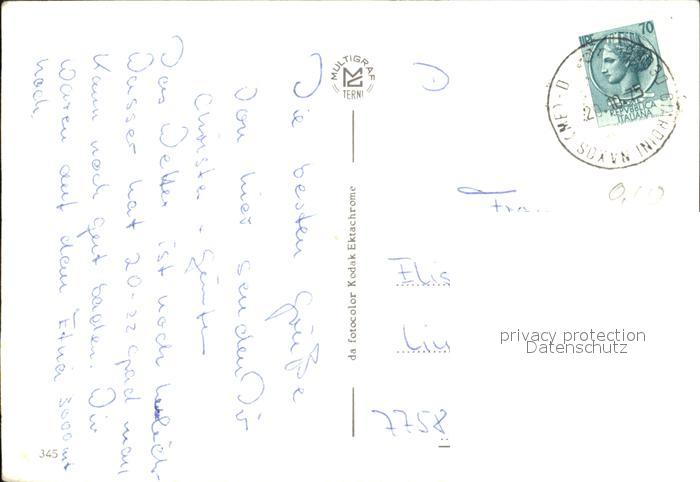 Die besten Grüße
von hier senden Dir
Christa + Günter
Das Wetter ist noch herrlich.
Wasser hat 20-22 Grad man
kann noch gut baden. Wir
waren auf dem Etna 3000 mt
hoch.
MULTIGRAF
TERNI
da fotocolor Kodak Ektachrome
345
LIRE 70
REPUBBLICA
ITALIANA
GIARDINI NAXOS (ME)
75
Elis
7758
privacy protection
Datenschutz